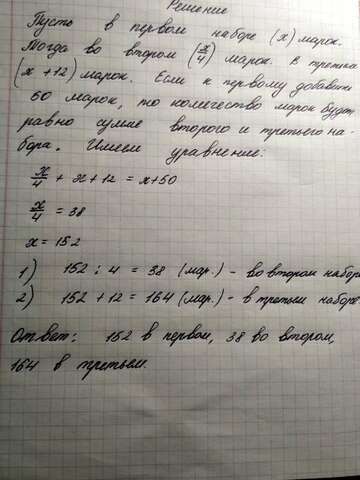 Решение
Пусть в первом наборе (x) марок.
Тогда во втором (x/4) марок. В третьем
(x + 12) марок. Если к первому добавить
50 марок, то количество марок будет
равно сумме второго и третьего на-
бора. Имеем уравнение:
x/4 + x + 12 = x+50
x/4 = 38
x = 152
1) 152 : 4 = 38 (мар.) - во втором наборе
2) 152 + 12 = 164 (мар.) - в третьем наборе
Ответ: 152 в первом, 38 во втором,
164 в третьем.